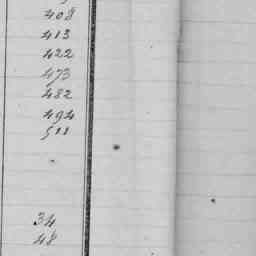 408
413
422
473
482
494
511
34
48